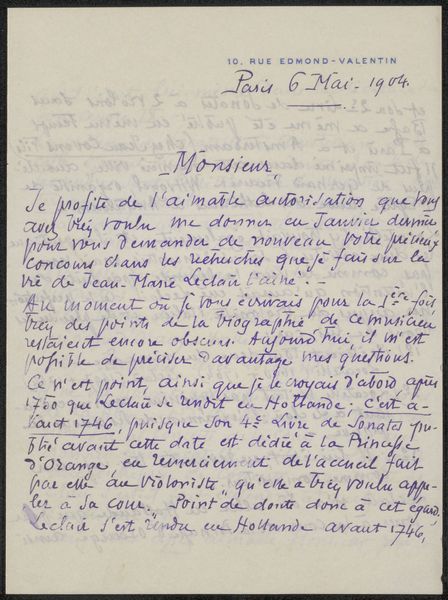 10. RUE EDMOND-VALENTIN
Paris 6 Mai - 1904.
Monsieur,
Je profite de l'aimable autorisation que vous
avez bien voulu me donner en Janvier dernier
pour vous demander de nouveau votre précieux
concours dans les recherches que je fais sur la
vie de Jean-Marie Leclair l'aîné.
Au moment où je vous écrivais pour la 1ère fois
bien des points de la biographie de ce musicien
restaient encore obscurs. Aujourd'hui, il m'est
possible de préciser davantage mes questions.
Ce n'est point, ainsi que je le croyais d'abord, après
1750 que Leclair se rendit en Hollande. c'est a-
vant 1746, puisque son 4e Livre de Sonates pu-
blié avant cette date est dédié à la Princesse
d'Orange, en remerciement de l'accueil fait
par elle au violoniste, qu'elle a bien voulu appe-
ler à sa cour. Point de doute donc à cet égard,
Leclair s'est rendu en Hollande avant 1746,